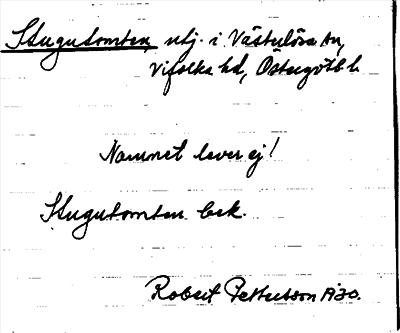 Stugutomten, utj. i Västerlösa sn,
Vifolka hd, Östergötl. l.
Namnet lever ej!
Stugutomten bek.
Robert Pettersson 1930.